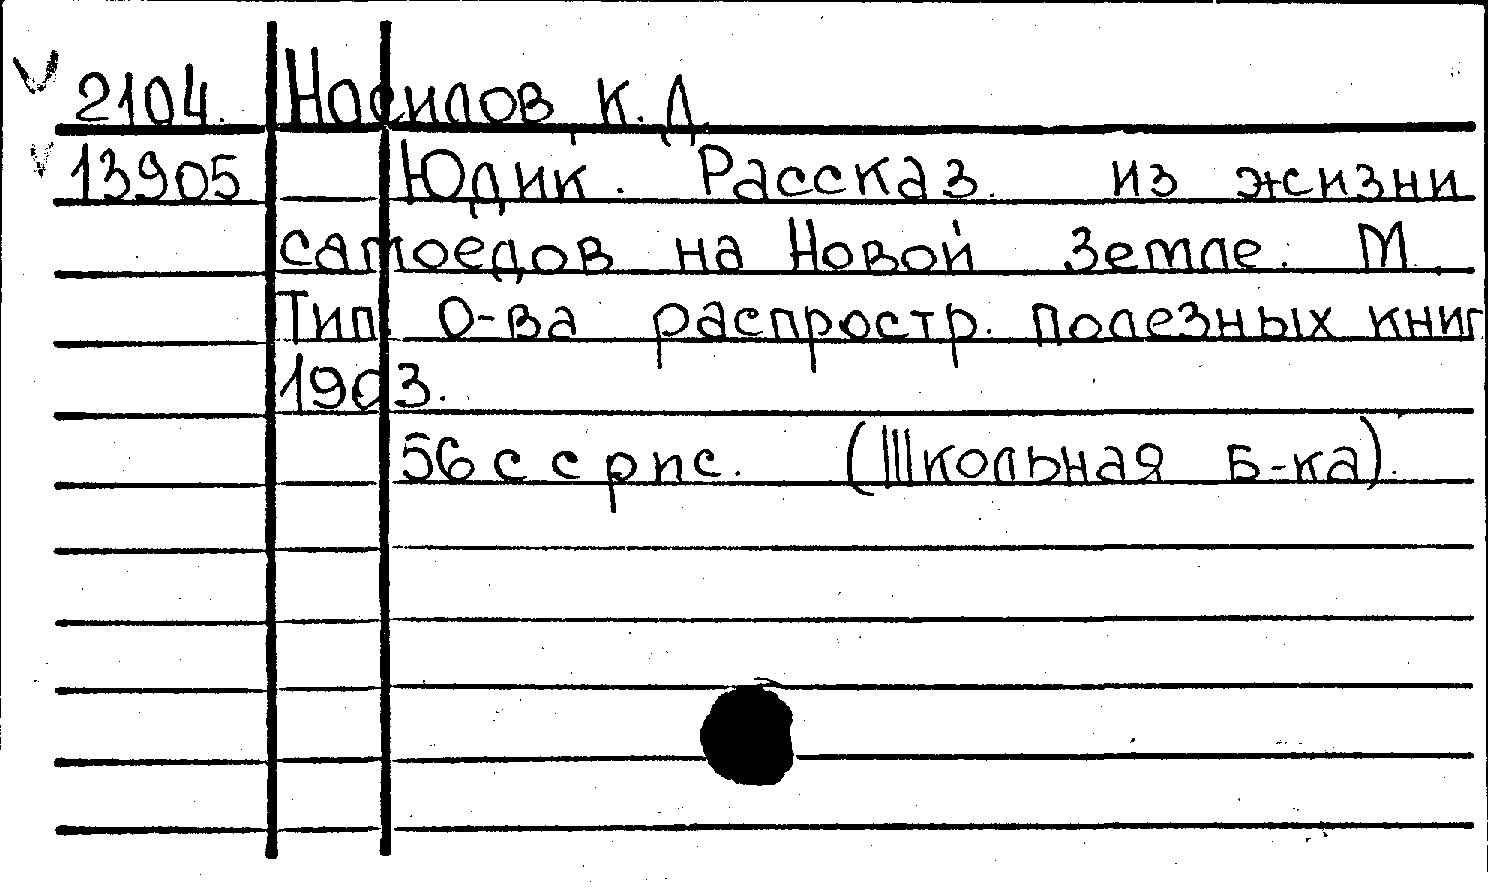 2104. Носилов, К. Д.
13905 Юдик. Рассказ. из жизни
самоедов на Новой Земле. М.
Тип. О-ва распростр. полезных книг
1903.
56 с с рис. (Школьная Б-ка).